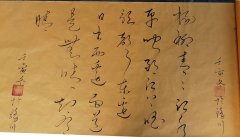 楊柳青青江水
平聞郎江上唱
歌聲東邊
日出西邊雨道
是無晴卻有
晴